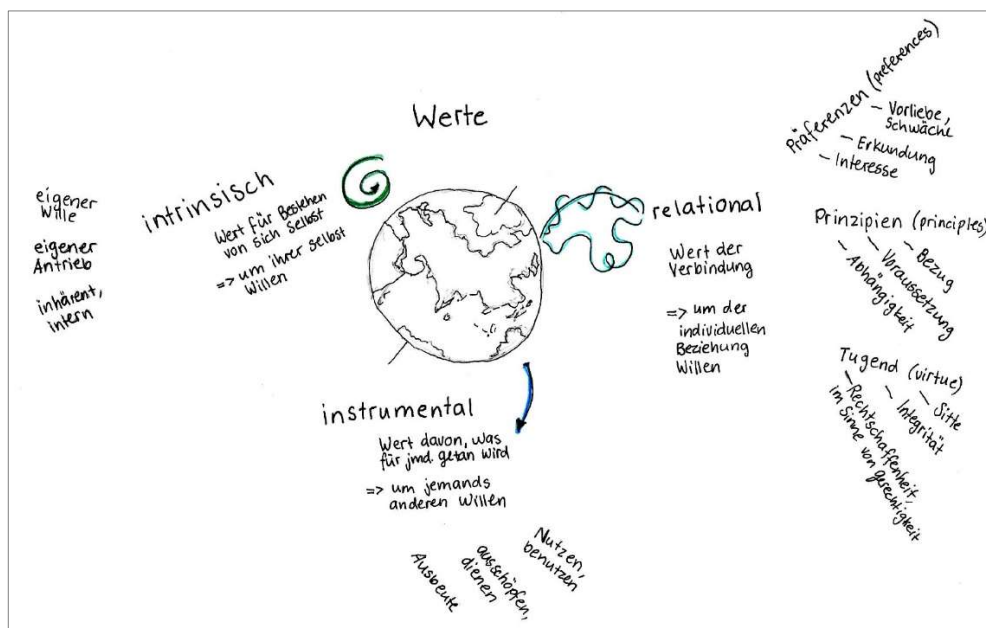 Werte
eigener
Wille
eigener
Antrieb
inhärent,
intern
intrinsisch
Wert für Bestehen
von sich selbst
=> um ihrer selbst
Willen
relational
Wert der
Verbindung
=> um der
individuellen
Beziehung
Willen
instrumental
Wert davon, was
für jmd. getan wird
=> um jemands
anderen Willen
Ausbeute
ausschöpfen,
dienen
Nutzen,
benutzen
Präferenzen (preferences)
– Vorliebe,
Schwäche
– Erkundung
– Interesse
Prinzipien (principles)
– Bezug
– Voraussetzung
– Abhängigkeit
Tugend (virtue)
– Sitte
– Integrität
– Rechtschaffenheit,
im Sinne von gerechtigkeit